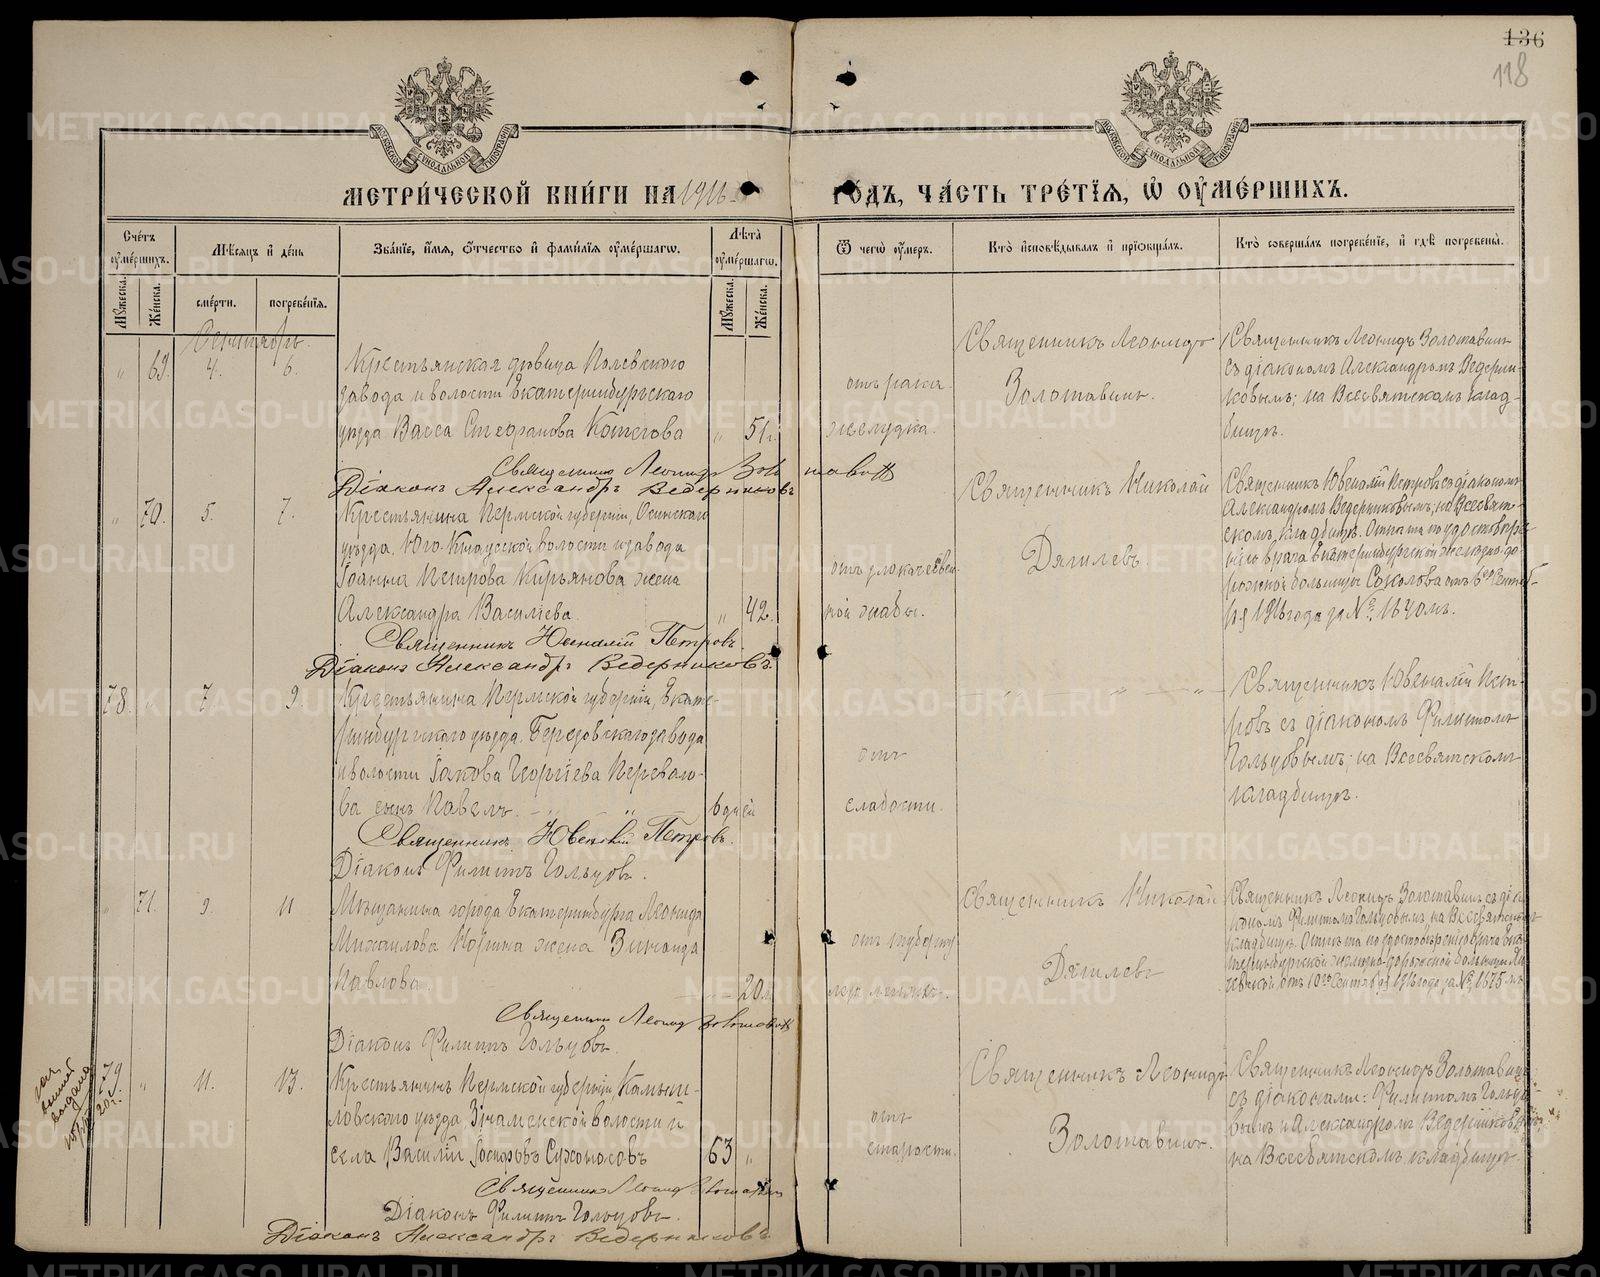 136
118
МЕТРИ́ЧЕСКОЙ КНИ́ГИ НА 1916 ГО́ДЪ, ЧА́СТЬ ТРЕ́ТЇЯ, Ѽ ОУ҆МЕ́РШИХЪ.
Сче́тъ оу҆ме́ршихъ.
Мꙋ́жеска.
Же́нска.
Мѣ́сяцъ и҆ де́нь
сме́рти.
погребе́нїя.
Зва́нїе, и҆́мя, ѻ҆́тчество и҆ фами́лїя оу҆ме́ршагѡ.
Лѣ́та оу҆ме́ршагѡ.
Мꙋ́жеска.
Же́нска.
Ѿ чегѡ̀ оу҆́меръ.
Кто̀ и҆сповѣ́дывалъ и҆ прїѡбща́лъ.
Кто̀ соверша́лъ погребе́нїе, и҆ гдѣ̀ погребены̀.
Сентябрь.
" 69. 4. 6.
Крестьянская дѣвица Полевского
завода и волости Екатеринбургскаго
уѣзда Васса Стефанова Котегова " 51 г.
отъ рака
желудка.
Священникъ Леонидъ
Золотавинъ.
Священникъ Леонидъ Золотавинъ
съ діакономъ Александромъ Ведерни-
ковымъ; на Всесвятскомъ клад-
бищѣ.
Священникъ Леонидъ Золотавинъ
Діаконъ Александръ Ведерниковъ
" 70. 5. 7.
Крестьянина Пермской губерніи, Осинскаго
уѣзда, Юго-Кнауфской волости и завода
Іоанна Петрова Кирьянова жена
Александра Василіева. " 42.
отъ злокачествен-
ной жабы.
Священникъ Николай
Дягилевъ
Священникъ Ювеналій Петровъ съ діакономъ
Александромъ Ведерниковымъ; на Всесвят-
скомъ кладбищѣ. Отпѣта по удостовѣре-
нію врача Екатеринбургской желѣзно-до-
рожной больницы Соколова отъ 6го Сентяб-
ря 1916 года за № 1640мъ.
Священникъ Ювеналій Петровъ.
Діаконъ Александръ Ведерниковъ
78. " 7 9.
Крестьянина Пермской губерніи, Екате-
ринбургскаго уѣзда Березовскаго завода
и волости Іакова Георгіева Перевало-
ва сынъ Павелъ. 6 дней
отъ
слабости.
Священникъ Ювеналій Пет-
ровъ съ діакономъ Филиппомъ
Гольцовымъ; на Всесвятскомъ
кладбищѣ.
Священникъ Ювеналій Петровъ.
Діаконъ Филиппъ Гольцовъ.
" 71. 9. 11
Мѣщанина города Екатеринбурга Леонида
Михаилова Корина жена Зинаида
Павлова. 20 л.
отъ туберку-
леза легкихъ.
Священникъ Николай
Дягилевъ
Священникъ Леонидъ Золотавинъ съ діа-
кономъ Филиппомъ Гольцовымъ на Всесвятскомъ
кладбищѣ. Отпѣта по удостовѣренію врача Ека-
теринбургской желѣзно-дорожной больницы
отъ 10го Сентября 1916 года за № 1675мъ
Священникъ Леонидъ Золотавинъ
Діаконъ Филиппъ Гольцовъ.
79 " 11. 13.
Крестьянинъ Пермской губерніи, Камыш-
ловскаго уѣзда Знаменской волости и
села Василій Іосифовъ Сухоносовъ 63 "
отъ
старости.
Священникъ Леонидъ
Золотавинъ.
Священникъ Леонидъ Золотавинъ
съ діаконами: Филиппомъ Гольцо-
вымъ и Александромъ Ведерниковымъ
на Всесвятскомъ кладбищѣ.
выдана
20 г.
Священникъ Леонидъ Золотавинъ
Діаконъ Филиппъ Гольцовъ.
Діаконъ Александръ Ведерниковъ
METRIKI.GASO-URAL.RU